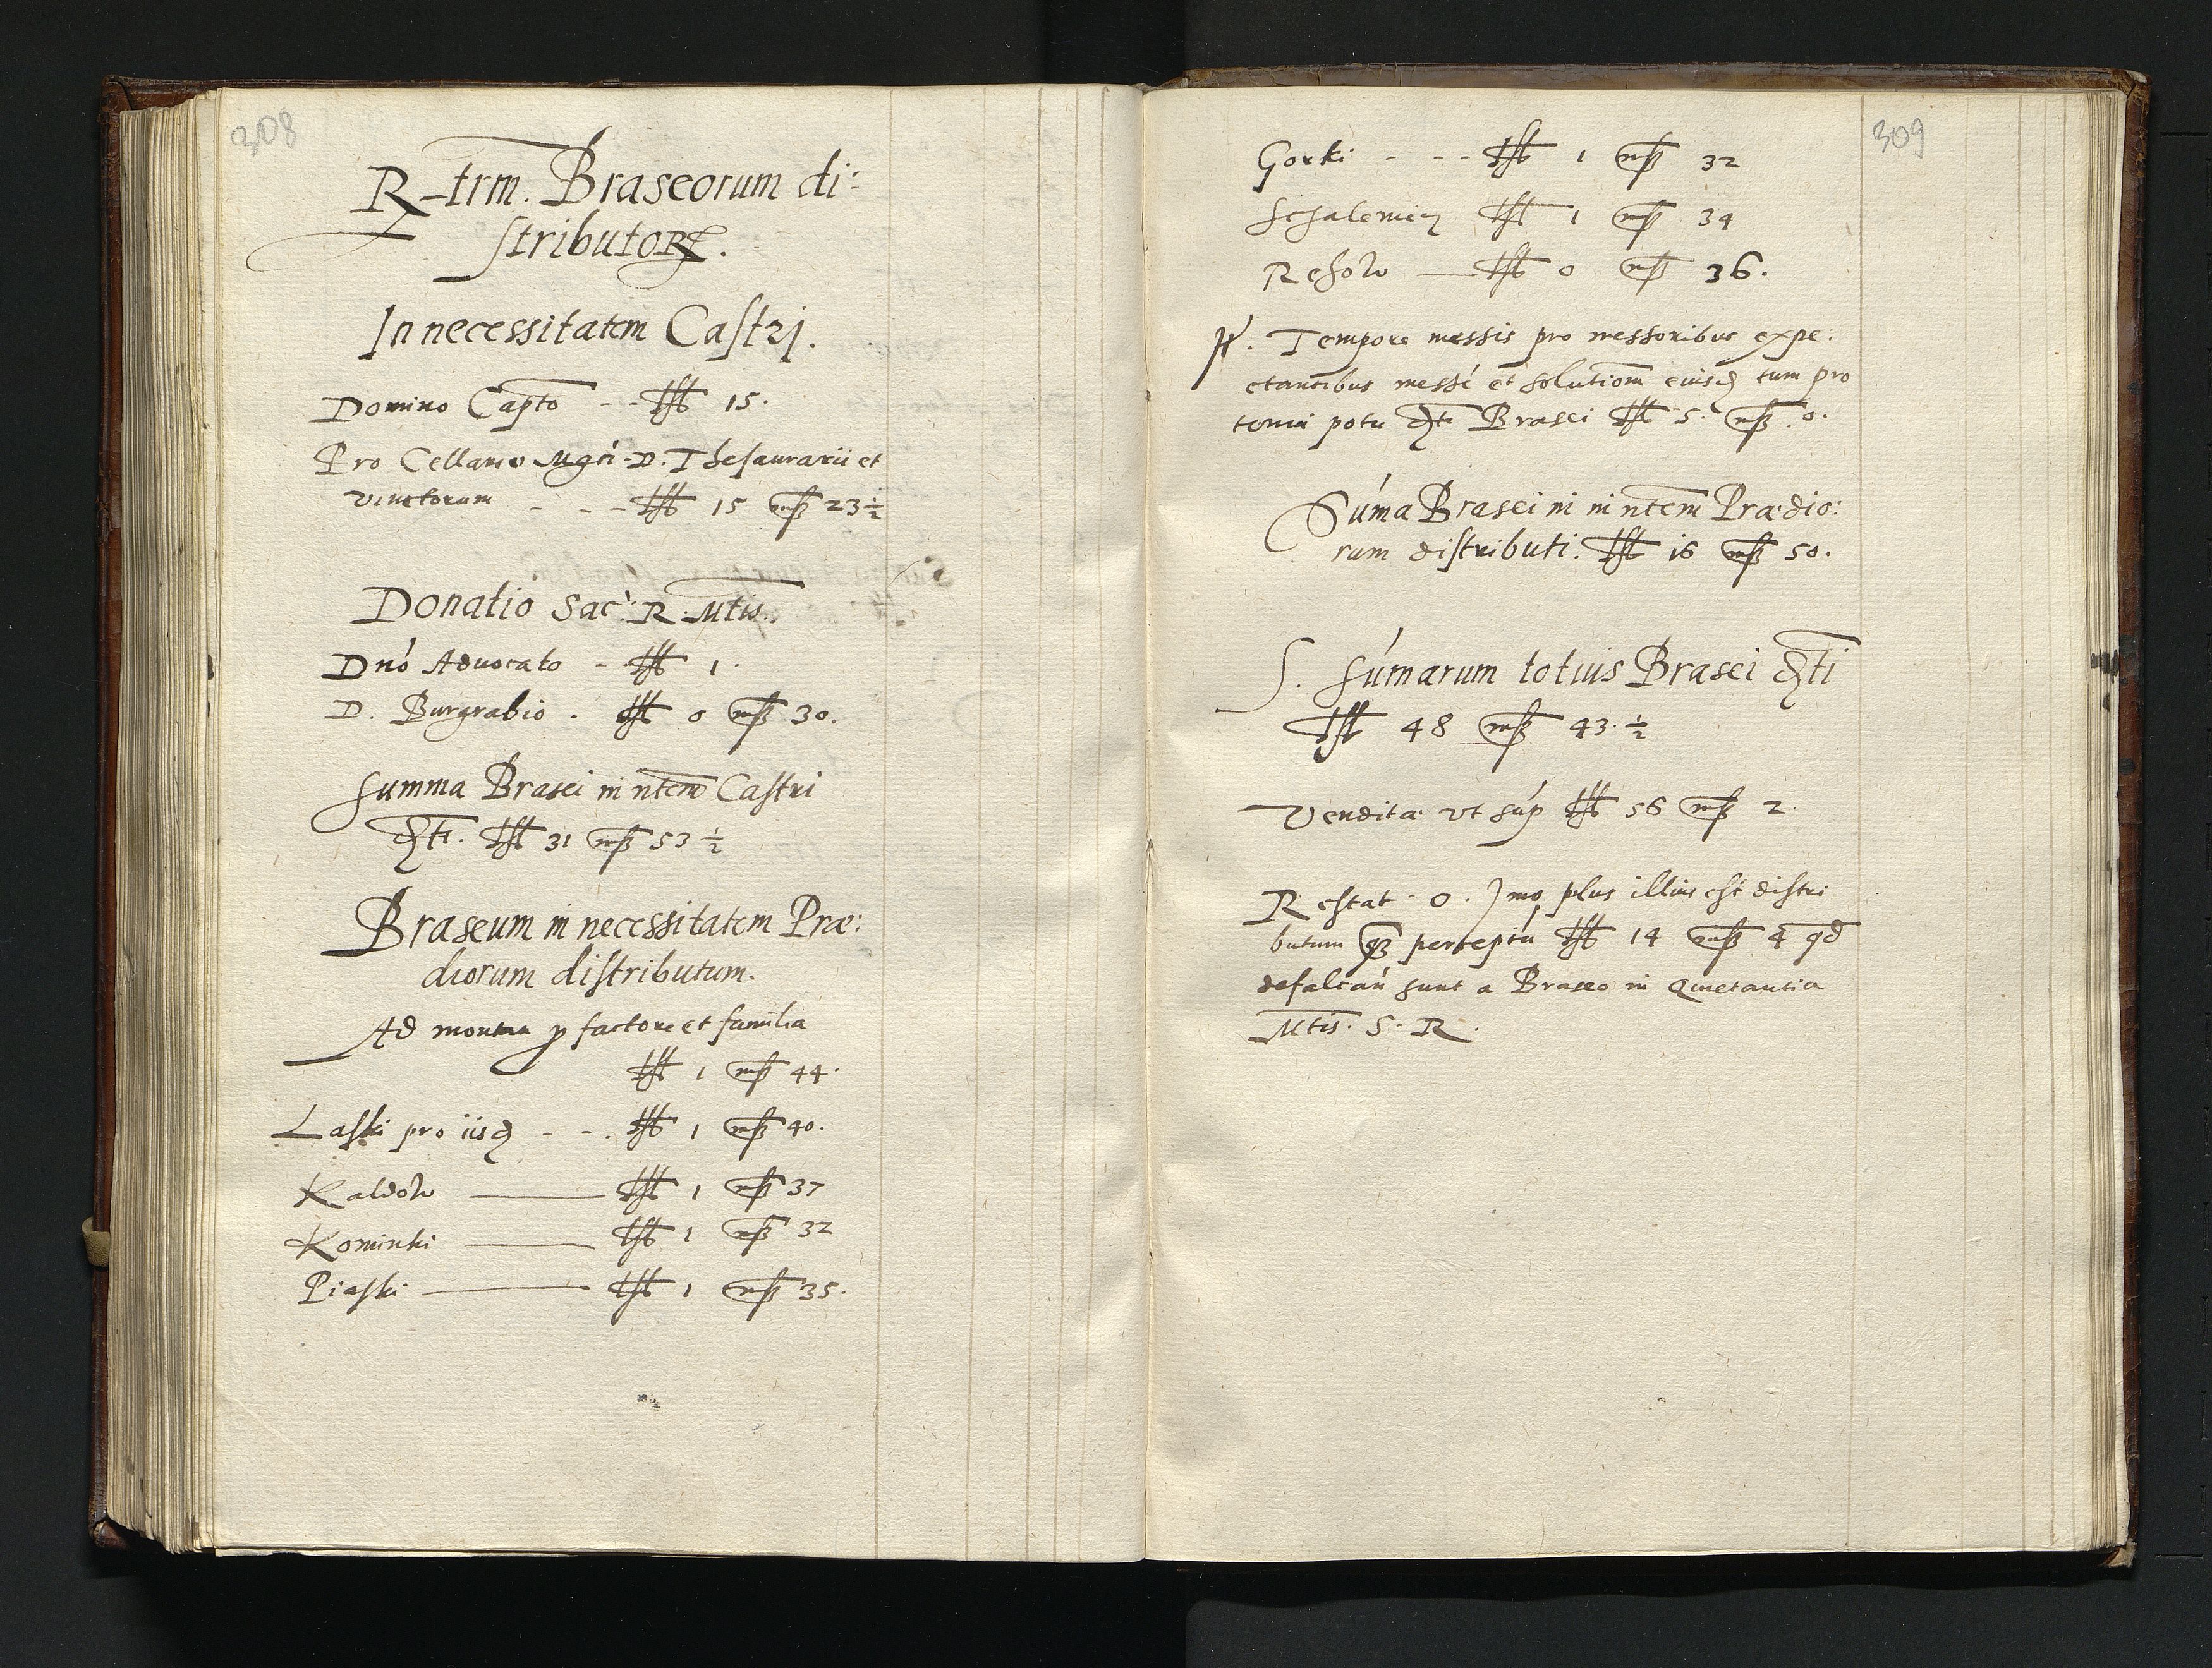 308
R-trm. Braseorum di:
stributor.
In necessitatem Castrj.
Domino Capto - - Lst 15.
Pro Cellario Mgci D. Thesaurarii et
vinctorum - - - Lst 15 ms 23 1/2
Donatio Sac: R. Mtis.
Dno Advocato - - Lst 1.
D. Burgrabio. Lst 0 ms 30.
Summa Brasei in ntem Castri
Dti. Lst 31 ms 53 1/2
Braseum in necessitatem Præ:
diorum distributum.
Ad p factore et familia
Lst 1 ms 44.
Laski pro iisd - - . Lst 1 ms 40.
Kaldow Lst 1 ms 37
Kominki Lst 1 ms 32
Piaski Lst 1 ms 35.
309
Gorki - - - Lst 1 ms 32
Lst 1 ms 34
Lst 0 ms 36.
It. Tempore messis pro messoribus expe:
ctantibus messé et solutiom eiusd tum pro
potu Dti Brasei Lst 5. ms 0.
Súma Brasei in ntem Prædio:
rum distributi. Lst 16 ms 50.
S. súmarum totius Brasei Dti
Lst 48 ms 43. 1/2
Vendita vt sup Lst 56 ms 2.
Restat 0. Imo plus illius est distri
butum perceptú Lst 14 ms 4 qd
defalcan sunt a Braseo in Quietantia
Mtis. S. R.